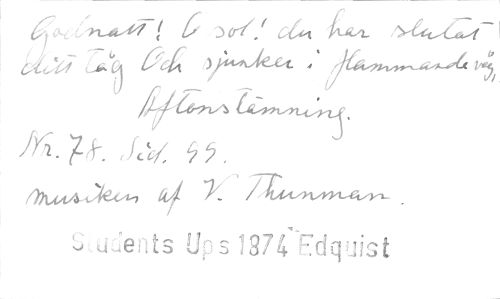 Godnatt! O sol! du har slutat
ditt tåg Och sjunker i flammande våg,
Aftonstämning.
Nr. 78. Sid. 99.
musiken af V. Thunman.
Students Ups 1874 Edquist